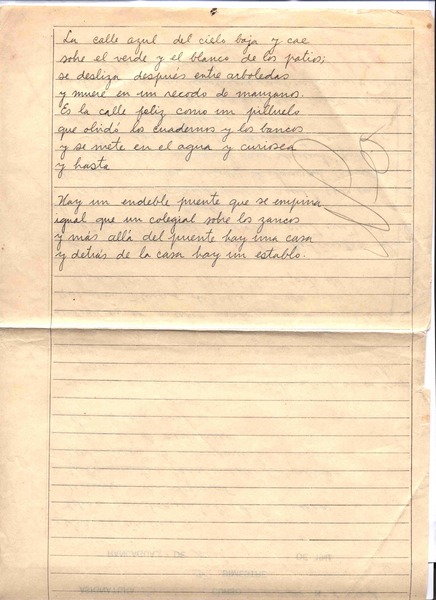 La calle azul del cielo baja y cae
sobre el verde y el blanco de los patios;
se desliza después entre arboledas
y muere en un recodo de manzano.
Es la calle feliz como un pilluelo
que olvidó los cuadernos y los bancos
y se mete en el agua y curiosea
y hasta
Hay un endeble puente que se empina
igual que un colegial sobre los zancos
y más allá del puente hay una casa
y detrás de la casa hay un establo.